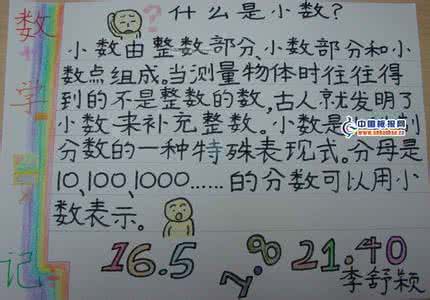 数学日记
什么是小数?
小数由整数部分、小数部分和小
数点组成。当测量物体时往往得
到的不是整数的数,古人就发明了
小数来补充整数。小数是
分数的一种特殊表现式。分母是
10,100,1000……的分数可以用小
数表示。
16.5 7.8 21.40
李舒颖
中国报报网